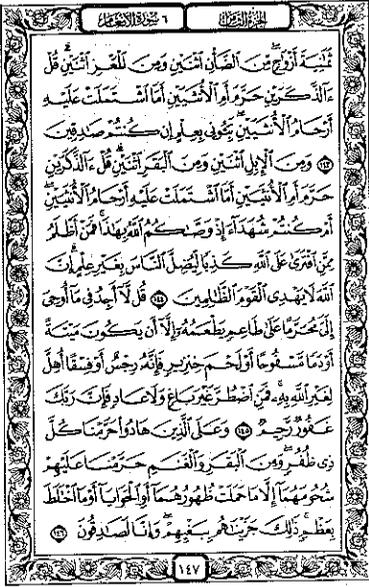 الجزء الثامن ٦ سورة الأنعام
ثَمَٰنِيَةَ أَزْوَٰجٍ ۖ مِّنَ ٱلضَّأْنِ ٱثْنَيْنِ وَمِنَ ٱلْمَعْزِ ٱثْنَيْنِ ۗ قُلْ
ءَآلذَّكَرَيْنِ حَرَّمَ أَمِ ٱلْأُنثَيَيْنِ أَمَّا ٱشْتَمَلَتْ عَلَيْهِ
أَرْحَامُ ٱلْأُنثَيَيْنِ ۖ نَبِّـُٔونِى بِعِلْمٍ إِن كُنتُمْ صَٰدِقِينَ
١٤٣ وَمِنَ ٱلْإِبِلِ ٱثْنَيْنِ وَمِنَ ٱلْبَقَرِ ٱثْنَيْنِ ۗ قُلْ ءَآلذَّكَرَيْنِ
حَرَّمَ أَمِ ٱلْأُنثَيَيْنِ أَمَّا ٱشْتَمَلَتْ عَلَيْهِ أَرْحَامُ ٱلْأُنثَيَيْنِ ۖ
أَمْ كُنتُمْ شُهَدَآءَ إِذْ وَصَّىٰكُمُ ٱللَّهُ بِهَٰذَا ۚ فَمَنْ أَظْلَمُ
مِمَّنِ ٱفْتَرَىٰ عَلَى ٱللَّهِ كَذِبًا لِّيُضِلَّ ٱلنَّاسَ بِغَيْرِ عِلْمٍ ۗ إِنَّ
ٱللَّهَ لَا يَهْدِى ٱلْقَوْمَ ٱلظَّٰلِمِينَ ١٤٤ قُل لَّآ أَجِدُ فِى مَآ أُوحِىَ
إِلَىَّ مُحَرَّمًا عَلَىٰ طَاعِمٍ يَطْعَمُهُۥٓ إِلَّآ أَن يَكُونَ مَيْتَةً
أَوْ دَمًا مَّسْفُوحًا أَوْ لَحْمَ خِنزِيرٍ فَإِنَّهُۥ رِجْسٌ أَوْ فِسْقًا أُهِلَّ
لِغَيْرِ ٱللَّهِ بِهِۦ ۚ فَمَنِ ٱضْطُرَّ غَيْرَ بَاغٍ وَلَا عَادٍ فَإِنَّ رَبَّكَ
غَفُورٌ رَّحِيمٌ ١٤٥ وَعَلَى ٱلَّذِينَ هَادُوا۟ حَرَّمْنَا كُلَّ
ذِى ظُفُرٍ ۖ وَمِنَ ٱلْبَقَرِ وَٱلْغَنَمِ حَرَّمْنَا عَلَيْهِمْ
شُحُومَهُمَآ إِلَّا مَا حَمَلَتْ ظُهُورُهُمَآ أَوِ ٱلْحَوَايَآ أَوْ مَا ٱخْتَلَطَ
بِعَظْمٍ ۚ ذَٰلِكَ جَزَيْنَٰهُم بِبَغْيِهِمْ ۖ وَإِنَّا لَصَٰدِقُونَ ١٤٦
١٤٧